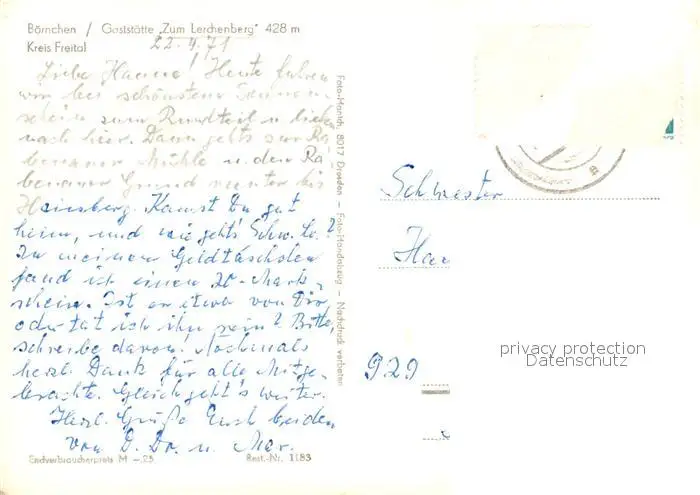 Börnchen / Gaststätte "Zum Lerchenberg" 428 m
Kreis Freital
22.4.71
Liebe Hanne! Heute fuhren
wir bei schönstem Sonnen-
schein zum Rundteil u. liefen
nach hier. Dann gehts zur Ra
benauer Mühle u. den Ra
benauer Grund runter bis
Hainsberg. Kamst Du gut
heim, und wie geht's Schw. Lo.?
In meinem Geldtäschchen
fand ich einen 20-Mark-
schein. Ist er etwa von Dir,
oder tat ich ihn rein? Bitte,
schreibe davon! Nochmals
herzl. Dank für alle Mitge-
brachte. Gleich geht's weiter.
Herzl. Grüße Euch beiden
von D. u. Mar.
Endverbraucherpreis M -.25
Best.-Nr. 1183
Foto-Hantsch, 8017 Dresden - Foto-Handabzug - Nachdruck verboten
Schwester
Han
920
privacy protection
Datenschutz